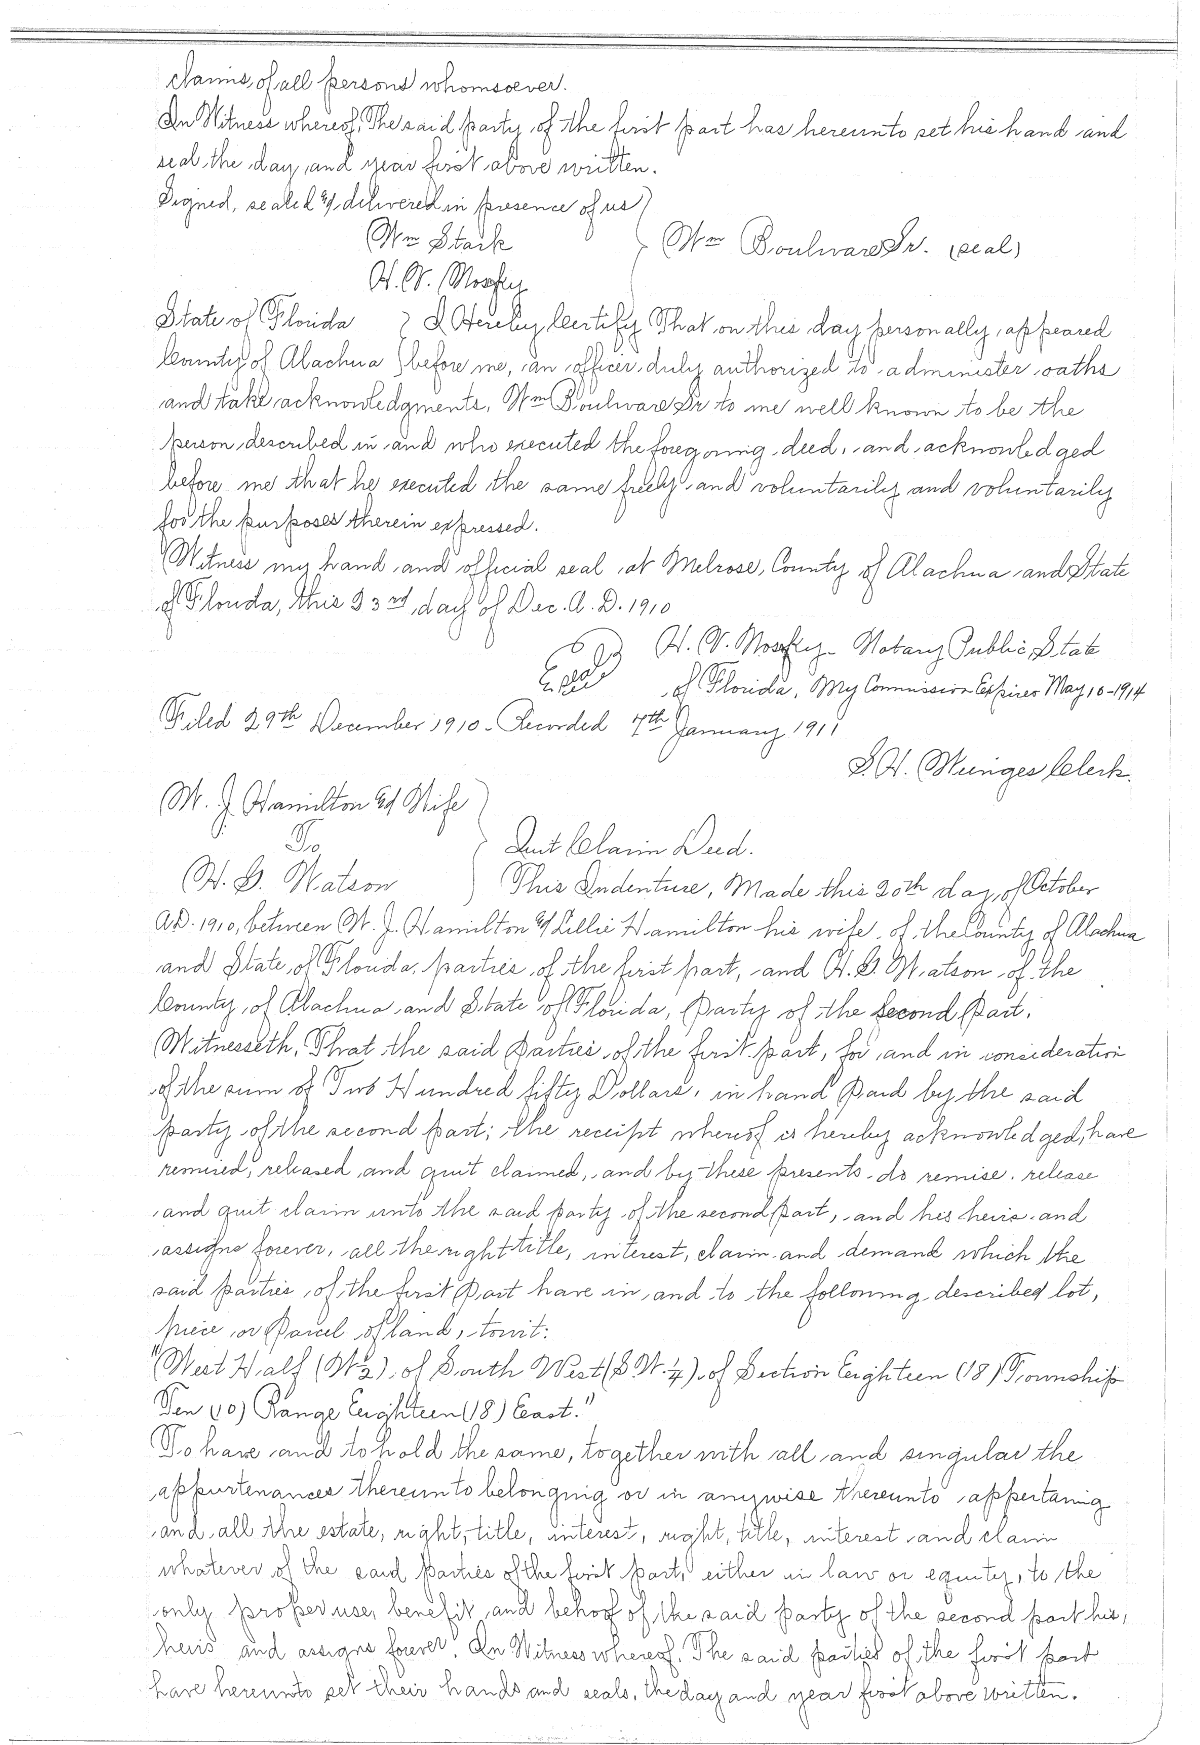 claims of all persons whomsoever.
In Witness whereof, The said party of the first part has hereunto set his hand and
seal the day and year first above written.
Signed, sealed & delivered in presence of us
Wm Stark
Wm Boulware Sr. (seal)
H. V.
State of Florida
I Hereby Certify That on this day personally appeared
County of Alachua
before me, an officer duly authorized to administer oaths
and take acknowledgments, Wm Boulware Sr to me well known to be the
person described in and who executed the foregoing deed, and acknowledged
before me that he executed the same freely and voluntarily and voluntarily
for the purposes therein expressed.
Witness my hand and official seal at Melrose, County of Alachua and State
of Florida, this 23rd day of Dec. A.D. 1910
H. V. - Notary Public State
Seal
of Florida, My Commission Expires May 10-1914
Filed 29th December 1910 - Recorded 7th January 1911
S.H. Wienges Clerk.
W. J. Hamilton & Wife
To
Quit Claim Deed.
H. G. Watson
This Indenture, Made this 20th day of October
A.D. 1910, between W. J. Hamilton & Lillie Hamilton his wife of the County of Alachua
and State of Florida, parties of the first part, and H. G. Watson of the
County of Alachua and State of Florida, Party of the Second Part.
Witnesseth, That the said Parties of the first part, for and in consideration
of the sum of Two Hundred fifty Dollars, in hand Paid by the said
party of the second part; the receipt whereof is hereby acknowledged, have
remised, released and quit claimed, and by these presents do remise, release
and quit claim unto the said party of the second part, and his heirs and
assigns forever, all the right title, interest, claim and demand which the
said parties of the first Part have in and to the following described lot,
piece or Parcel of land, towit:
"West Half (W½) of South West (S.W.¼) of Section Eighteen (18) Township
Ten (10) Range Eighteen (18) East."
To have and to hold the same, together with all and singular the
appurtenances thereunto belonging or in anywise thereunto appertaning
and all the estate, right, title, interest, right, title, interest and claim
whatever of the said parties of the first part, either in law or equity, to the
only proper use, benefit and behoof of the said party of the second part his,
heirs and assigns forever. In Witness whereof, The said parties of the first part
have hereunto set their hands and seals, the day and year first above written.